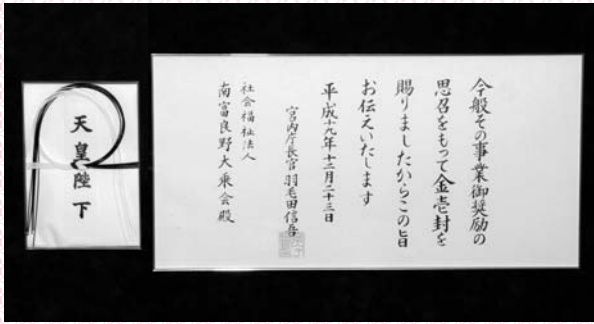 今般その事業御奨励の
思召をもって金壱封を
賜りましたからこの旨
お伝えいたします
平成十九年十二月二十三日
宮内庁長官羽毛田信吾
社会福祉法人
南富良野大乗会殿
天皇陛下